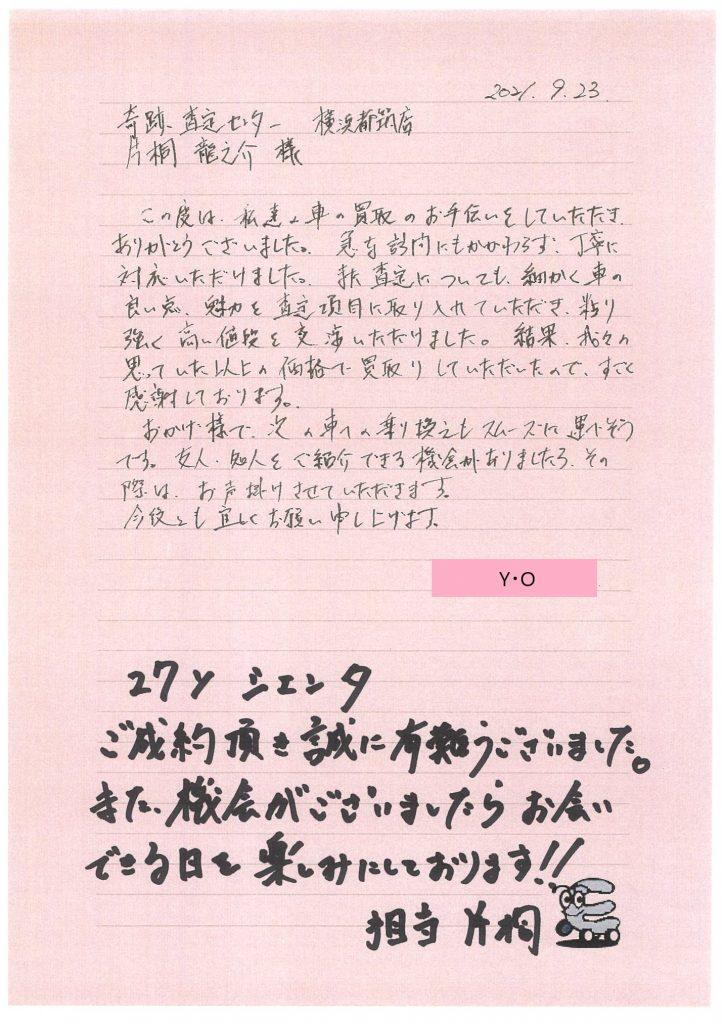 2021. 9. 23.
奇跡、査定センター 横浜都筑店
片桐 龍之介 様
この度は、私達の車の買取のお手伝いをしていただき、
ありがとうございました。急な訪問にもかかわらず、丁寧に
対応いただけました。また査定についても、細かく車の
良い点、魅力を査定項目に取り入れていただき、粘り
強く高い値段を交渉いただけりました。結果、我々の
思っていた以上の価格で買取りしていただいたので、すごく
感謝しております。
おかげ様で、次の車への乗り換えもスムーズに運べそう
です。友人・知人をご紹介できる機会がありましたら、その
際は、お声掛けさせていただきます。
今後とも宜しくお願い申し上げます。
Y・O
27y シエンタ
ご成約頂き誠に有難うございました。
また、機会がございましたらお会い
できる日を楽しみにしております!!
担当 片桐